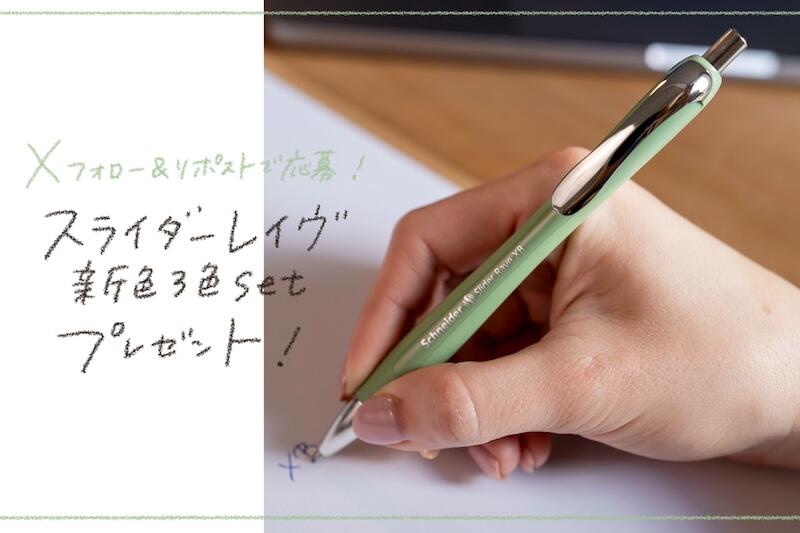 Xフォロー&リポストで応募!
スライダーレイヴ
新色3色set
プレゼント!
Schneider Slider Rave XB
XB